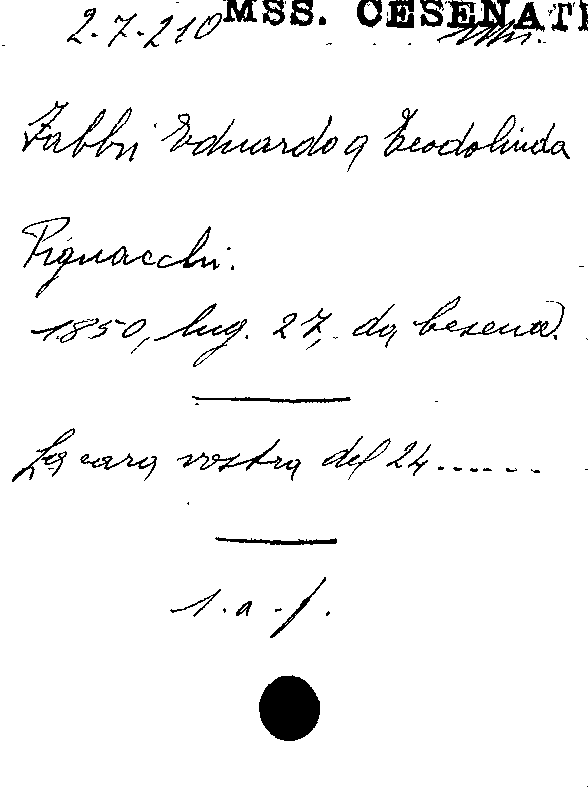 2-7-210 MSS. CESENATI
Fabbri Eduardo a Teodolinda
Pignacchi.
1850, lug. 27, da Cesena.
La cara vostra del 24......
1. a. f.